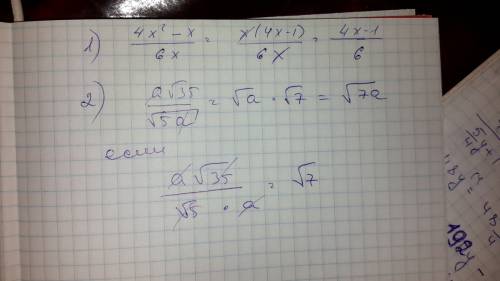 1) (4x² - x)/(6x) = (x(4x-1))/(6x) = (4x-1)/6
2) (a√35)/(√5a) = √a · √7 = √7a
если
(a√35)/(√5 · a) = √7